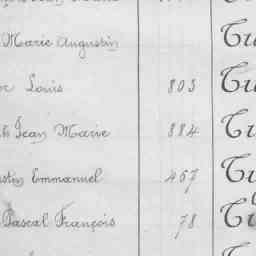 Marie Augustin Tu
Louis 803 Tu
Jean Marie 884 Tu
Emmanuel 467 Tu
Pascal François 78 Tu